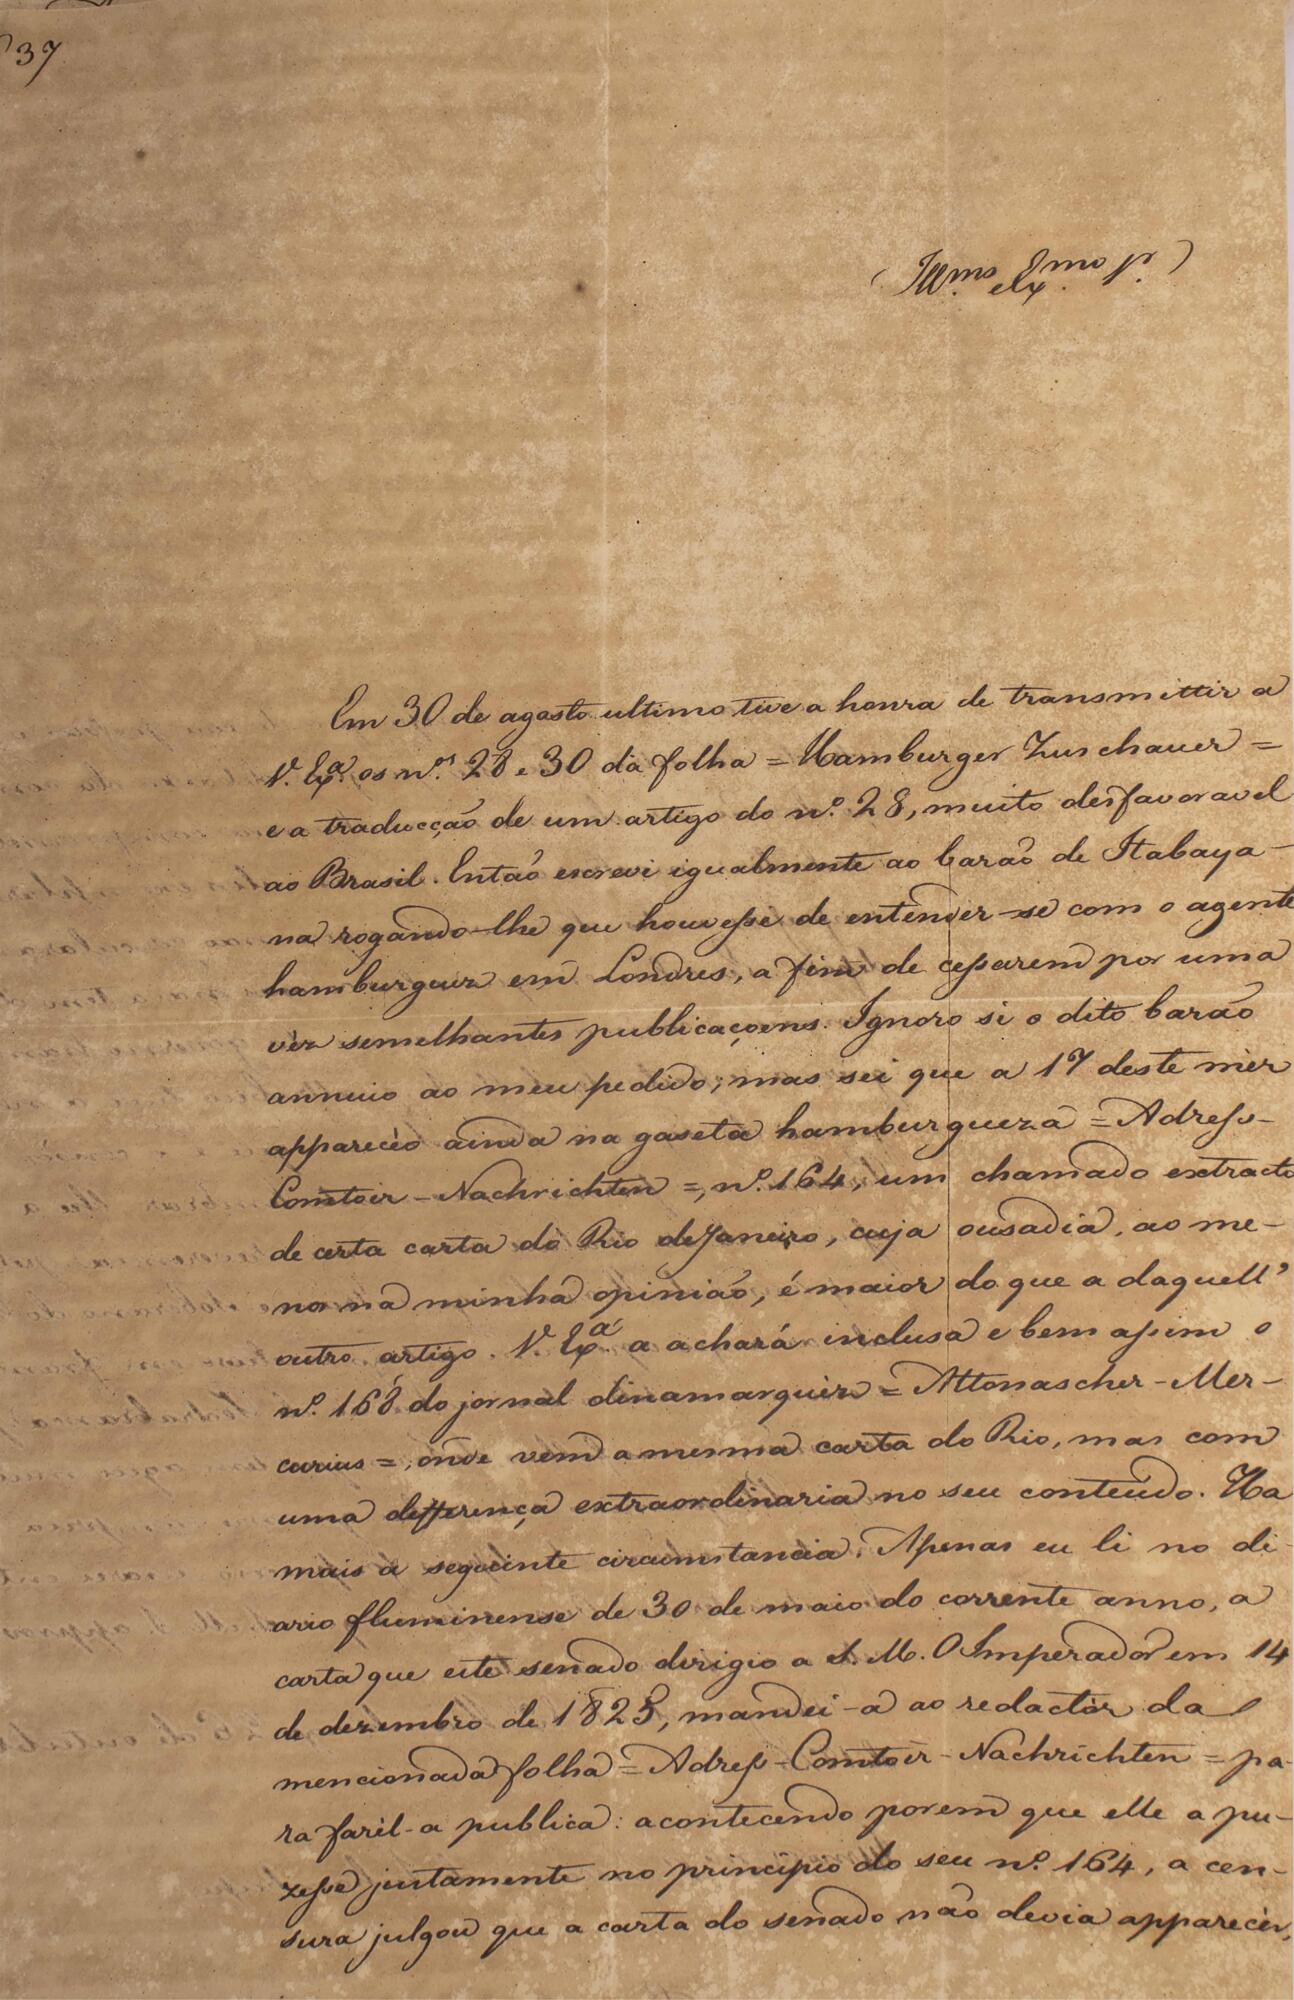 37
Ill.mo e Ex.mo Sr.
Em 30 de agosto ultimo tive a honra de transmittir a
V. Ex.a os n.os 28 e 30 da folha = Hamburger Zuschauer =
e a traducção de um artigo do n.o 28, muito desfavoravel
ao Brasil. Então escrevi igualmente ao barão de Itabaya-
na rogando-lhe que houvesse de entender-se com o agente
hamburguez em Londres, a fim de cessarem por uma
vêz semelhantes publicaçoens. Ignoro si o dito barão
annuio ao meu pedido; mas sei que a 17 deste mêz
apparecêo ainda na gaseta hamburgueza = Adress-
Comtoir-Nachrichten =, n.o 164, um chamado extracto
de certa carta do Rio de Janeiro, cuja ousadia, ao me-
nos na minha opinião, é maior do que a daquell'
outro artigo. V. Ex.a a achará inclusa e bem assim o
n.o 168 do jornal dinamarquêz = Altonascher-Mer-
curius =, onde vem a mesma carta do Rio, mas com
uma differença extraordinaria no seu conteúdo. Ha
mais a seguinte circumstancia. Apenas eu li no di-
ario fluminense de 30 de maio do corrente anno, a
carta que este senado dirigio a S. M. O Imperador em 14
de dezembro de 1825, mandei-a ao redactôr da
mencionada folha = Adress-Comtoir-Nachrichten = pa-
ra fazêl-a publica: acontecendo porem que elle a pu-
zesse justamente no principio do seu n.o 164, a cen-
sura julgou que a carta do senado não devia apparecêr,